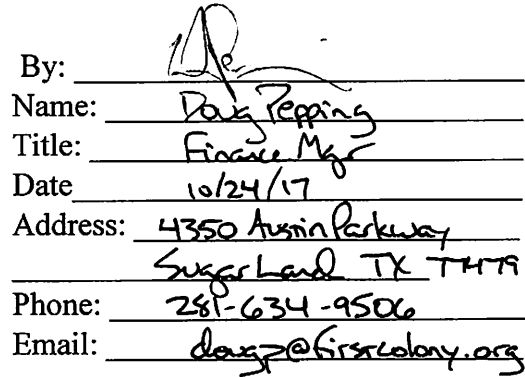 By:
Name: Doug Pepping
Title: Finance Mgr
Date 10/24/17
Address: 4350 Austin Parkway
Sugar Land TX 77479
Phone: 281-634-9506
Email: dougp@firstcolony.org